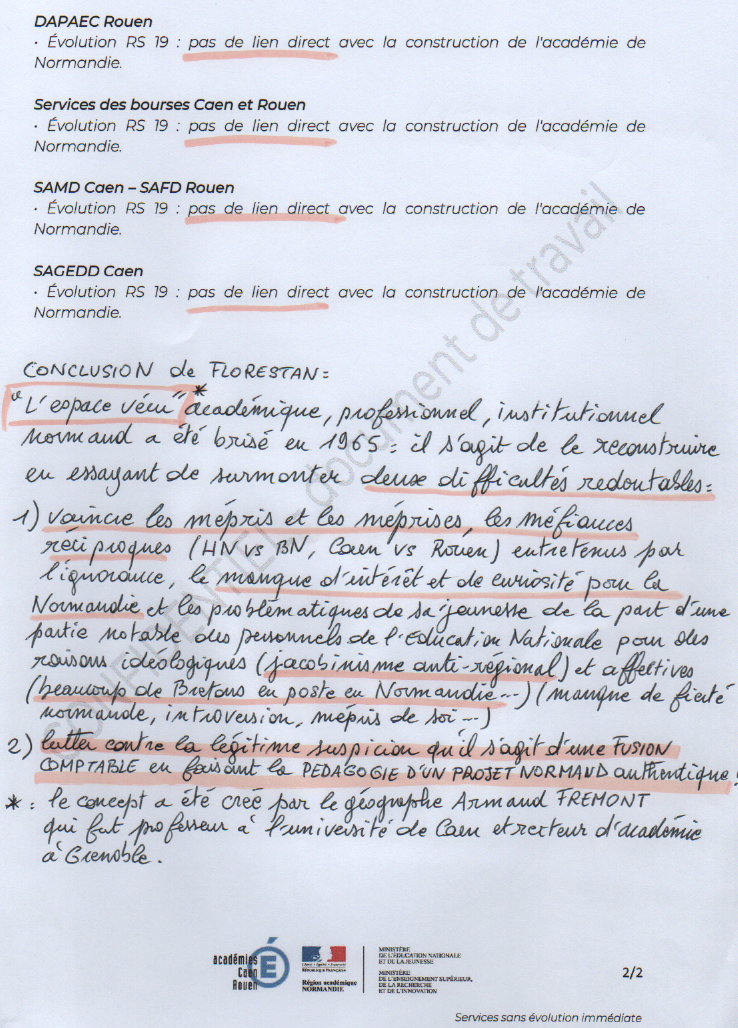 DAPAEC Rouen
• Évolution RS 19 : pas de lien direct avec la construction de l'académie de
Normandie.
Services des bourses Caen et Rouen
• Évolution RS 19 : pas de lien direct avec la construction de l'académie de
Normandie.
SAMD Caen – SAFD Rouen
• Évolution RS 19 : pas de lien direct avec la construction de l'académie de
Normandie.
SAGEDD Caen
• Évolution RS 19 : pas de lien direct avec la construction de l'académie de
Normandie.
CONFIDENTIEL document de travail
CONCLUSION de FLORESTAN :
"L'espace vécu"* académique, professionnel, institutionnel
normand a été brisé en 1965 : il s'agit de le reconstruire
en essayant de surmonter deux difficultés redoutables :
1) vaincre les mépris et les méprises, les méfiances
réciproques (HN vs BN, Caen vs Rouen) entretenus par
l'ignorance, le manque d'intérêt et de curiosité pour la
Normandie et les problématiques de sa jeunesse de la part d'une
partie notable des personnels de l'Education Nationale pour des
raisons idéologiques (jacobinisme anti-régional) et affectives
(beaucoup de Bretons en poste en Normandie...) (manque de fierté
normande, introversion, mépris de soi...)
2) lutter contre la légitime suspicion qu'il s'agit d'une FUSION
COMPTABLE en faisant la PEDAGOGIE D'UN PROJET NORMAND authentique !
* : le concept a été créé par le géographe Armand FREMONT
qui fut professeur à l'université de Caen et recteur d'académie
à Grenoble.
académies
Caen
Rouen
É
Liberté • Égalité • Fraternité
RÉPUBLIQUE FRANÇAISE
Région académique
NORMANDIE
MINISTÈRE
DE L'ÉDUCATION NATIONALE
ET DE LA JEUNESSE
MINISTÈRE
DE L'ENSEIGNEMENT SUPÉRIEUR,
DE LA RECHERCHE
ET DE L'INNOVATION
2/2
Services sans évolution immédiate